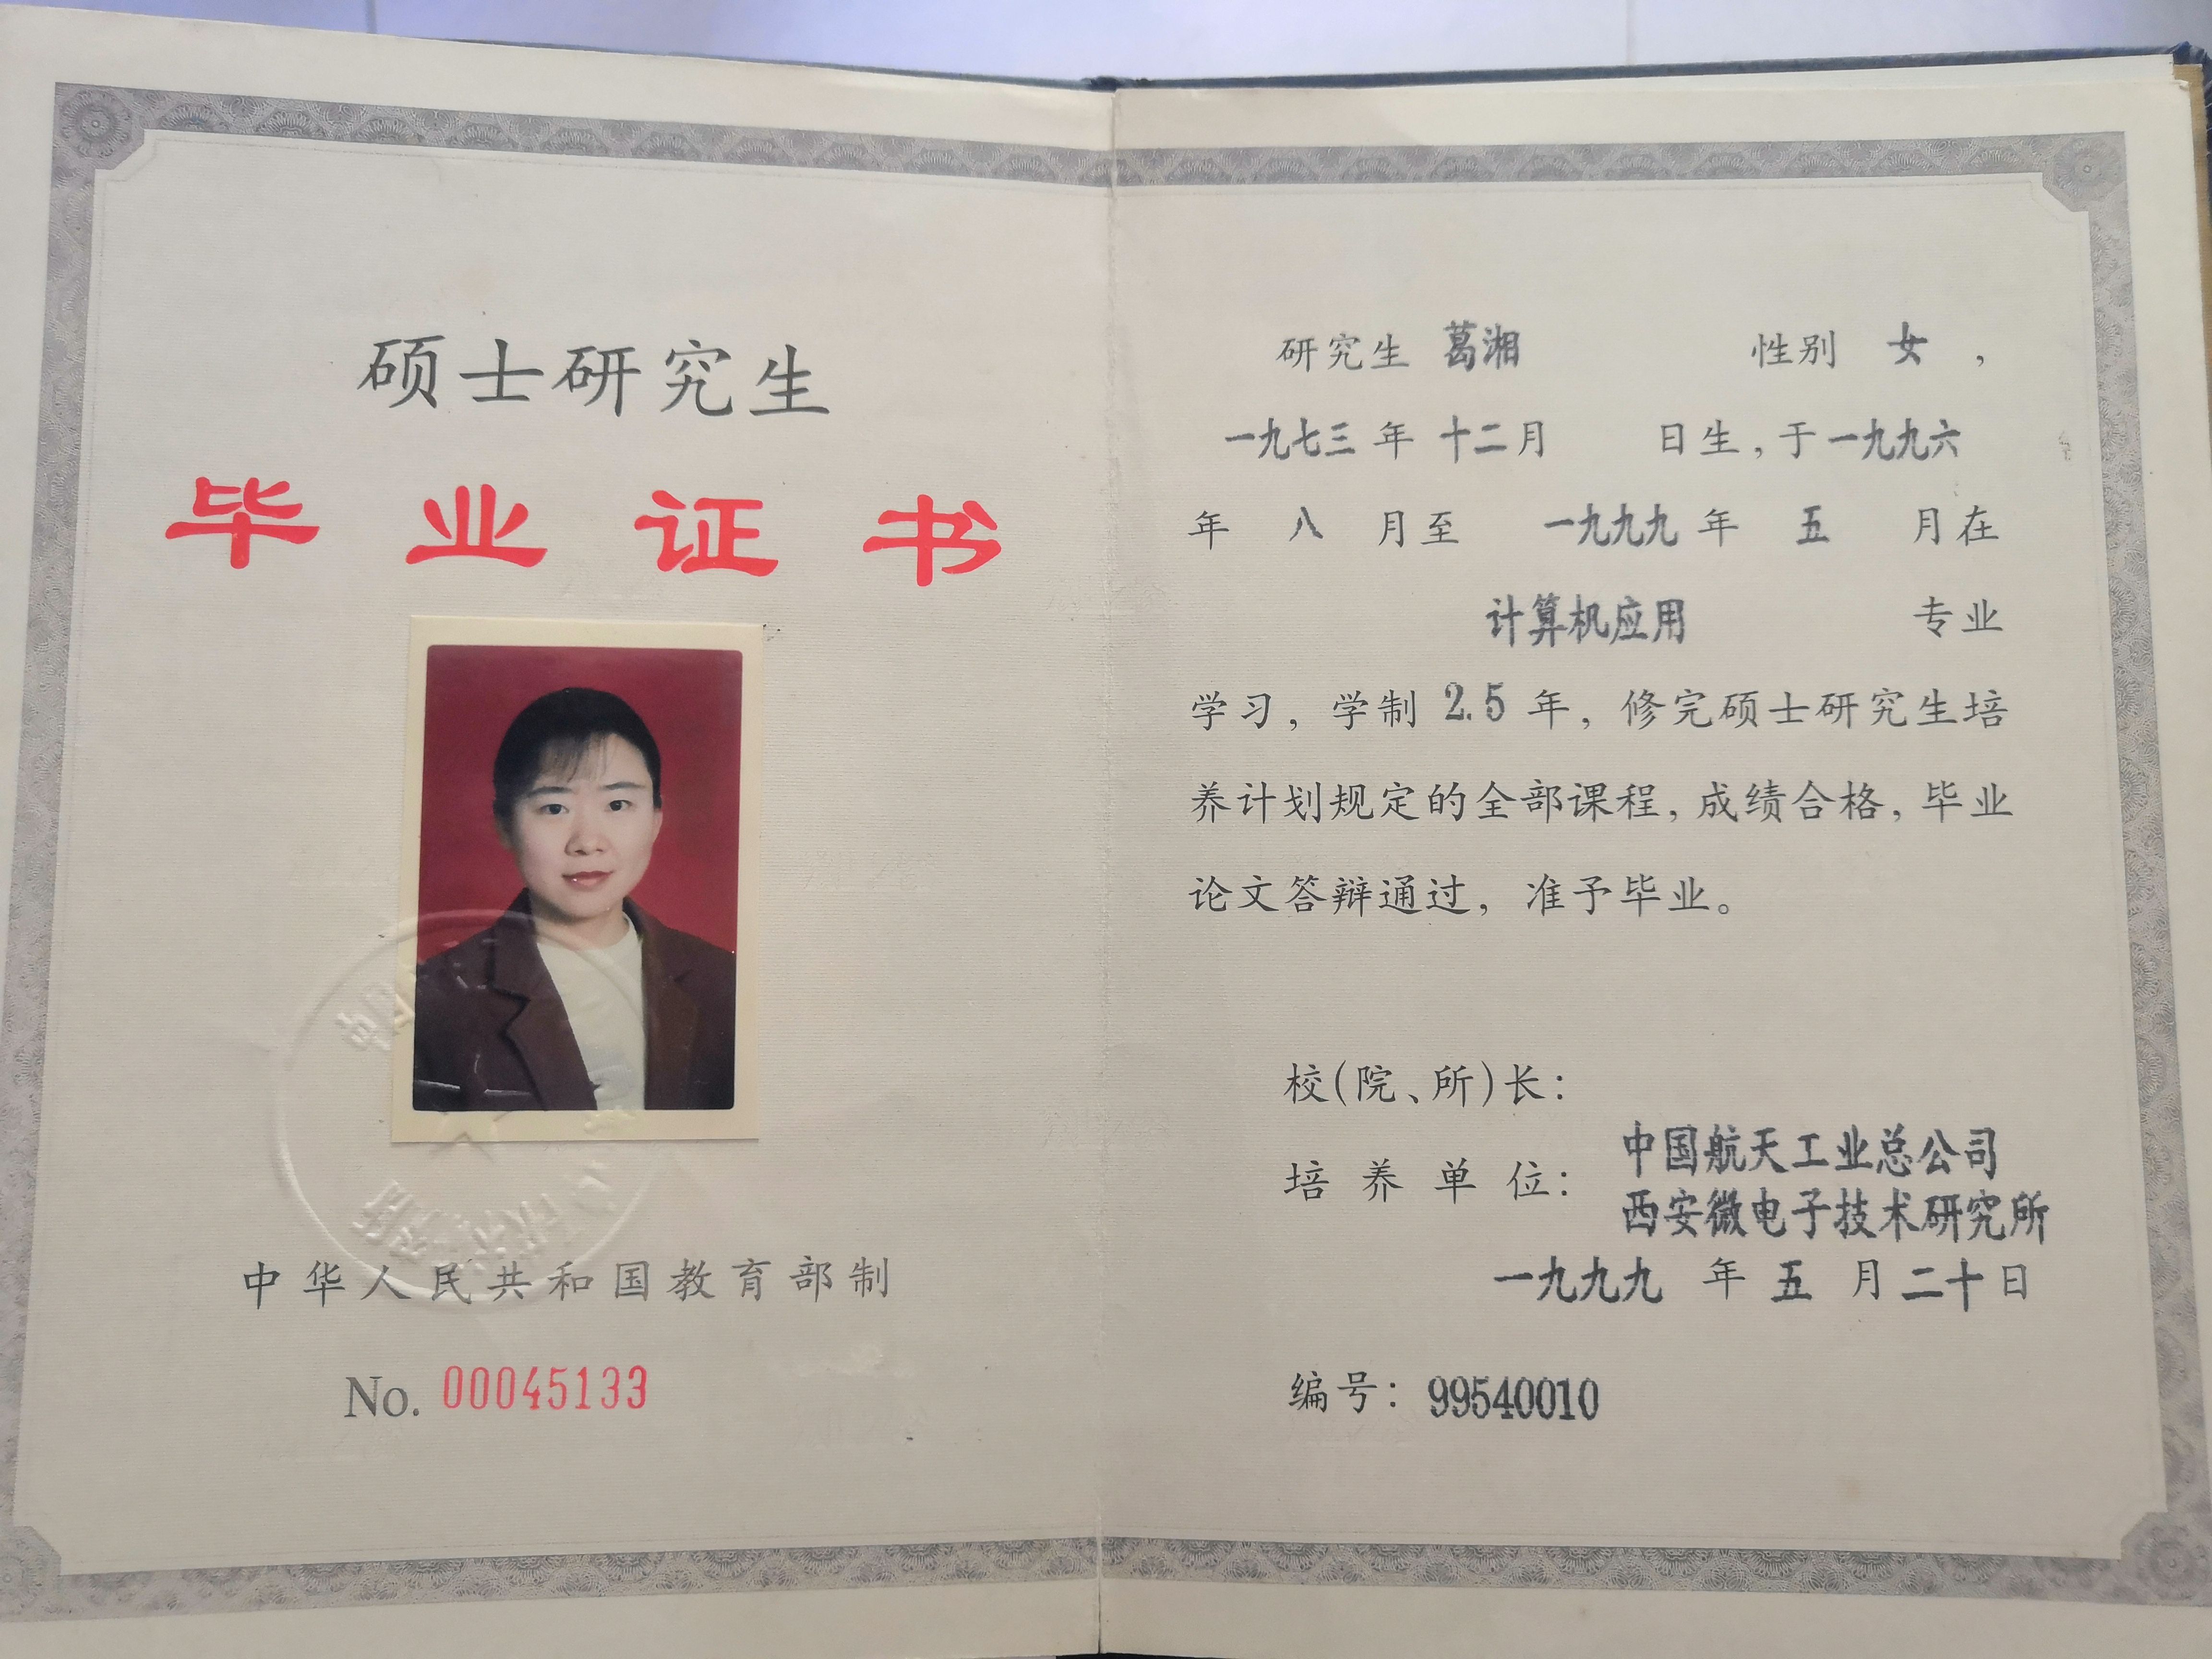 硕士研究生
毕业证书
中华人民共和国教育部制
No. 00045133
研究生 葛湘 性别 女 ，
一九七三 年 十二月 日生，于 一九九六
年 八 月至 一九九九 年 五 月在
计算机应用 专业
学习，学制 2.5 年，修完硕士研究生培
养计划规定的全部课程，成绩合格，毕业
论文答辩通过，准予毕业。
校(院、所)长：
培养单位： 中国航天工业总公司
西安微电子技术研究所
一九九九 年 五 月 二十日
编号： 99540010